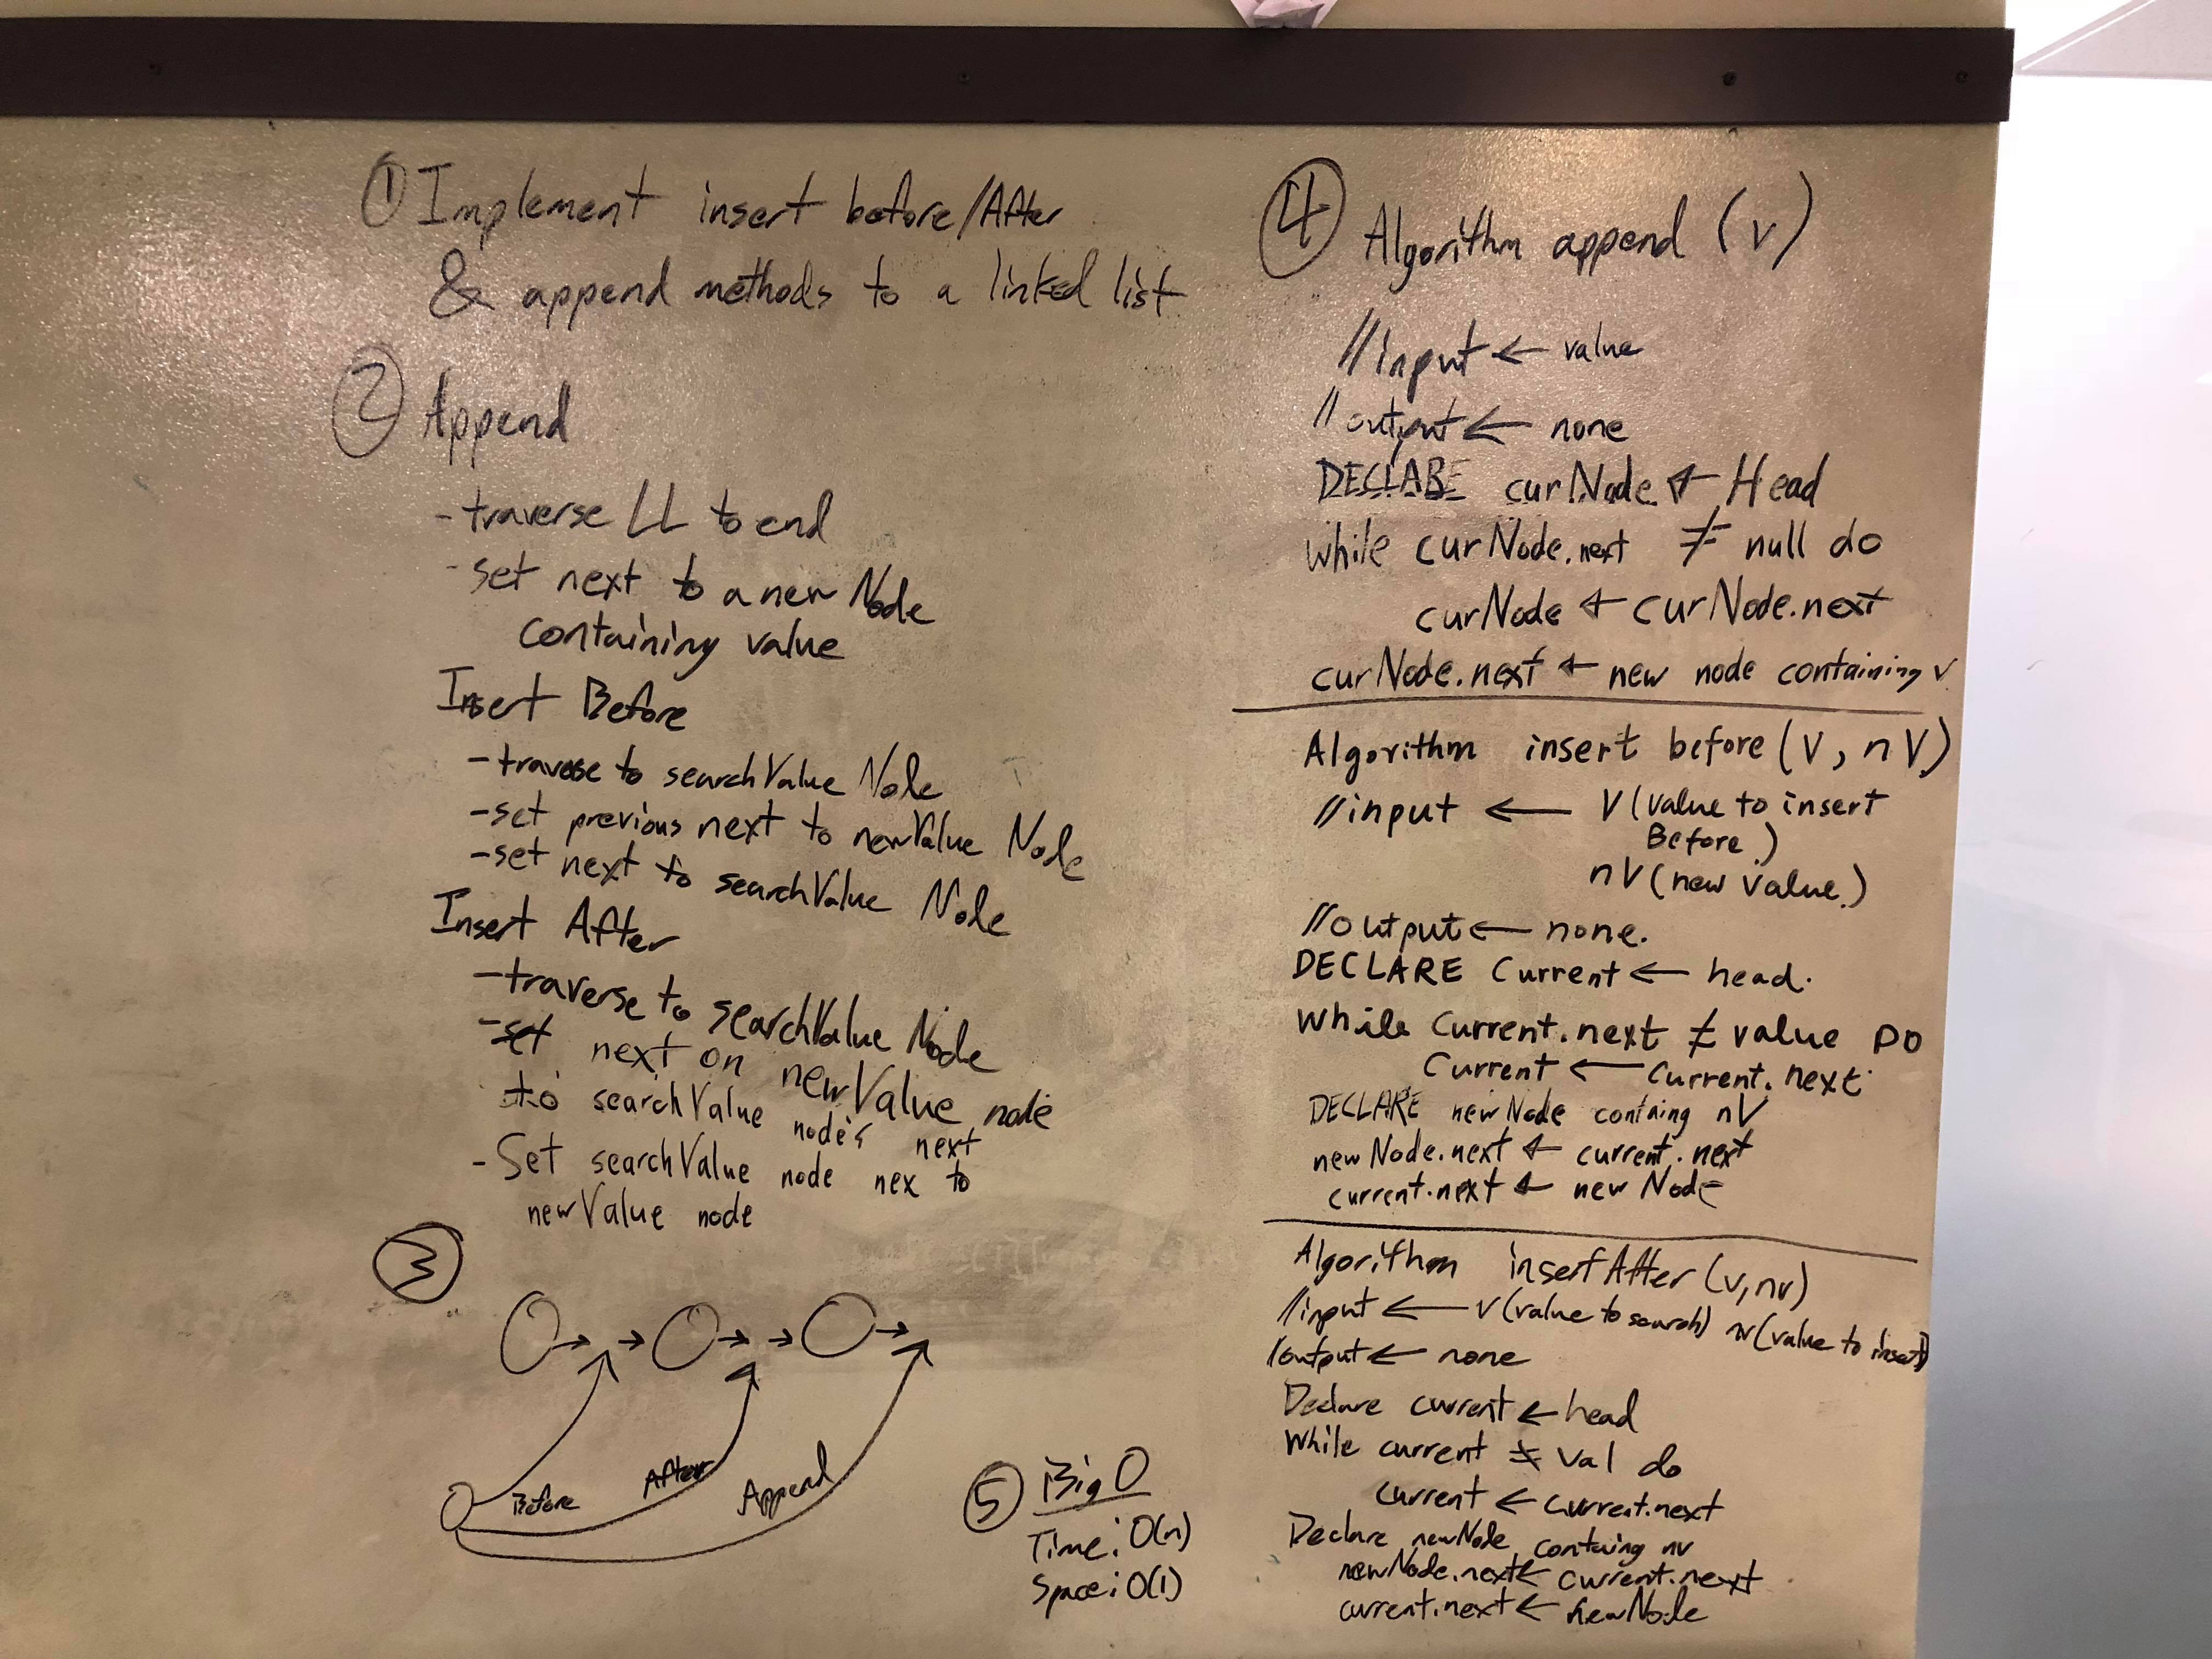 ① Implement insert before/After
& append methods to a linked list
② Append
- traverse LL to end
- set next to a new Node
containing value
Insert Before
- traverse to searchValue Node
- set previous next to newValue Node
- set next to searchValue Node
Insert After
- traverse to searchValue Node
- set next on newValue node
to searchValue node's next
- Set searchValue node nex to
newValue node
③
Before
After
Append
⑤ Big O
Time: O(n)
Space: O(1)
④ Algorithm append (v)
// input ← value
// output ← none
DECLARE curNode ← Head
while curNode.next ≠ null do
curNode ← curNode.next
curNode.next ← new node containing v
Algorithm insert before (V, nV)
// input ← V (value to insert
Before)
nV (new value)
// output ← none.
DECLARE Current ← head.
While Current.next ≠ value DO
Current ← Current.next
DECLARE newNode containg nV
newNode.next ← current.next
current.next ← newNode
Algorithm insertAfter (v, nv)
// input ← v (value to search) nv (value to insert)
// output ← none
Declare current ← head
While current ≠ val do
current ← current.next
Declare newNode containg nv
newNode.next ← current.next
current.next ← newNode